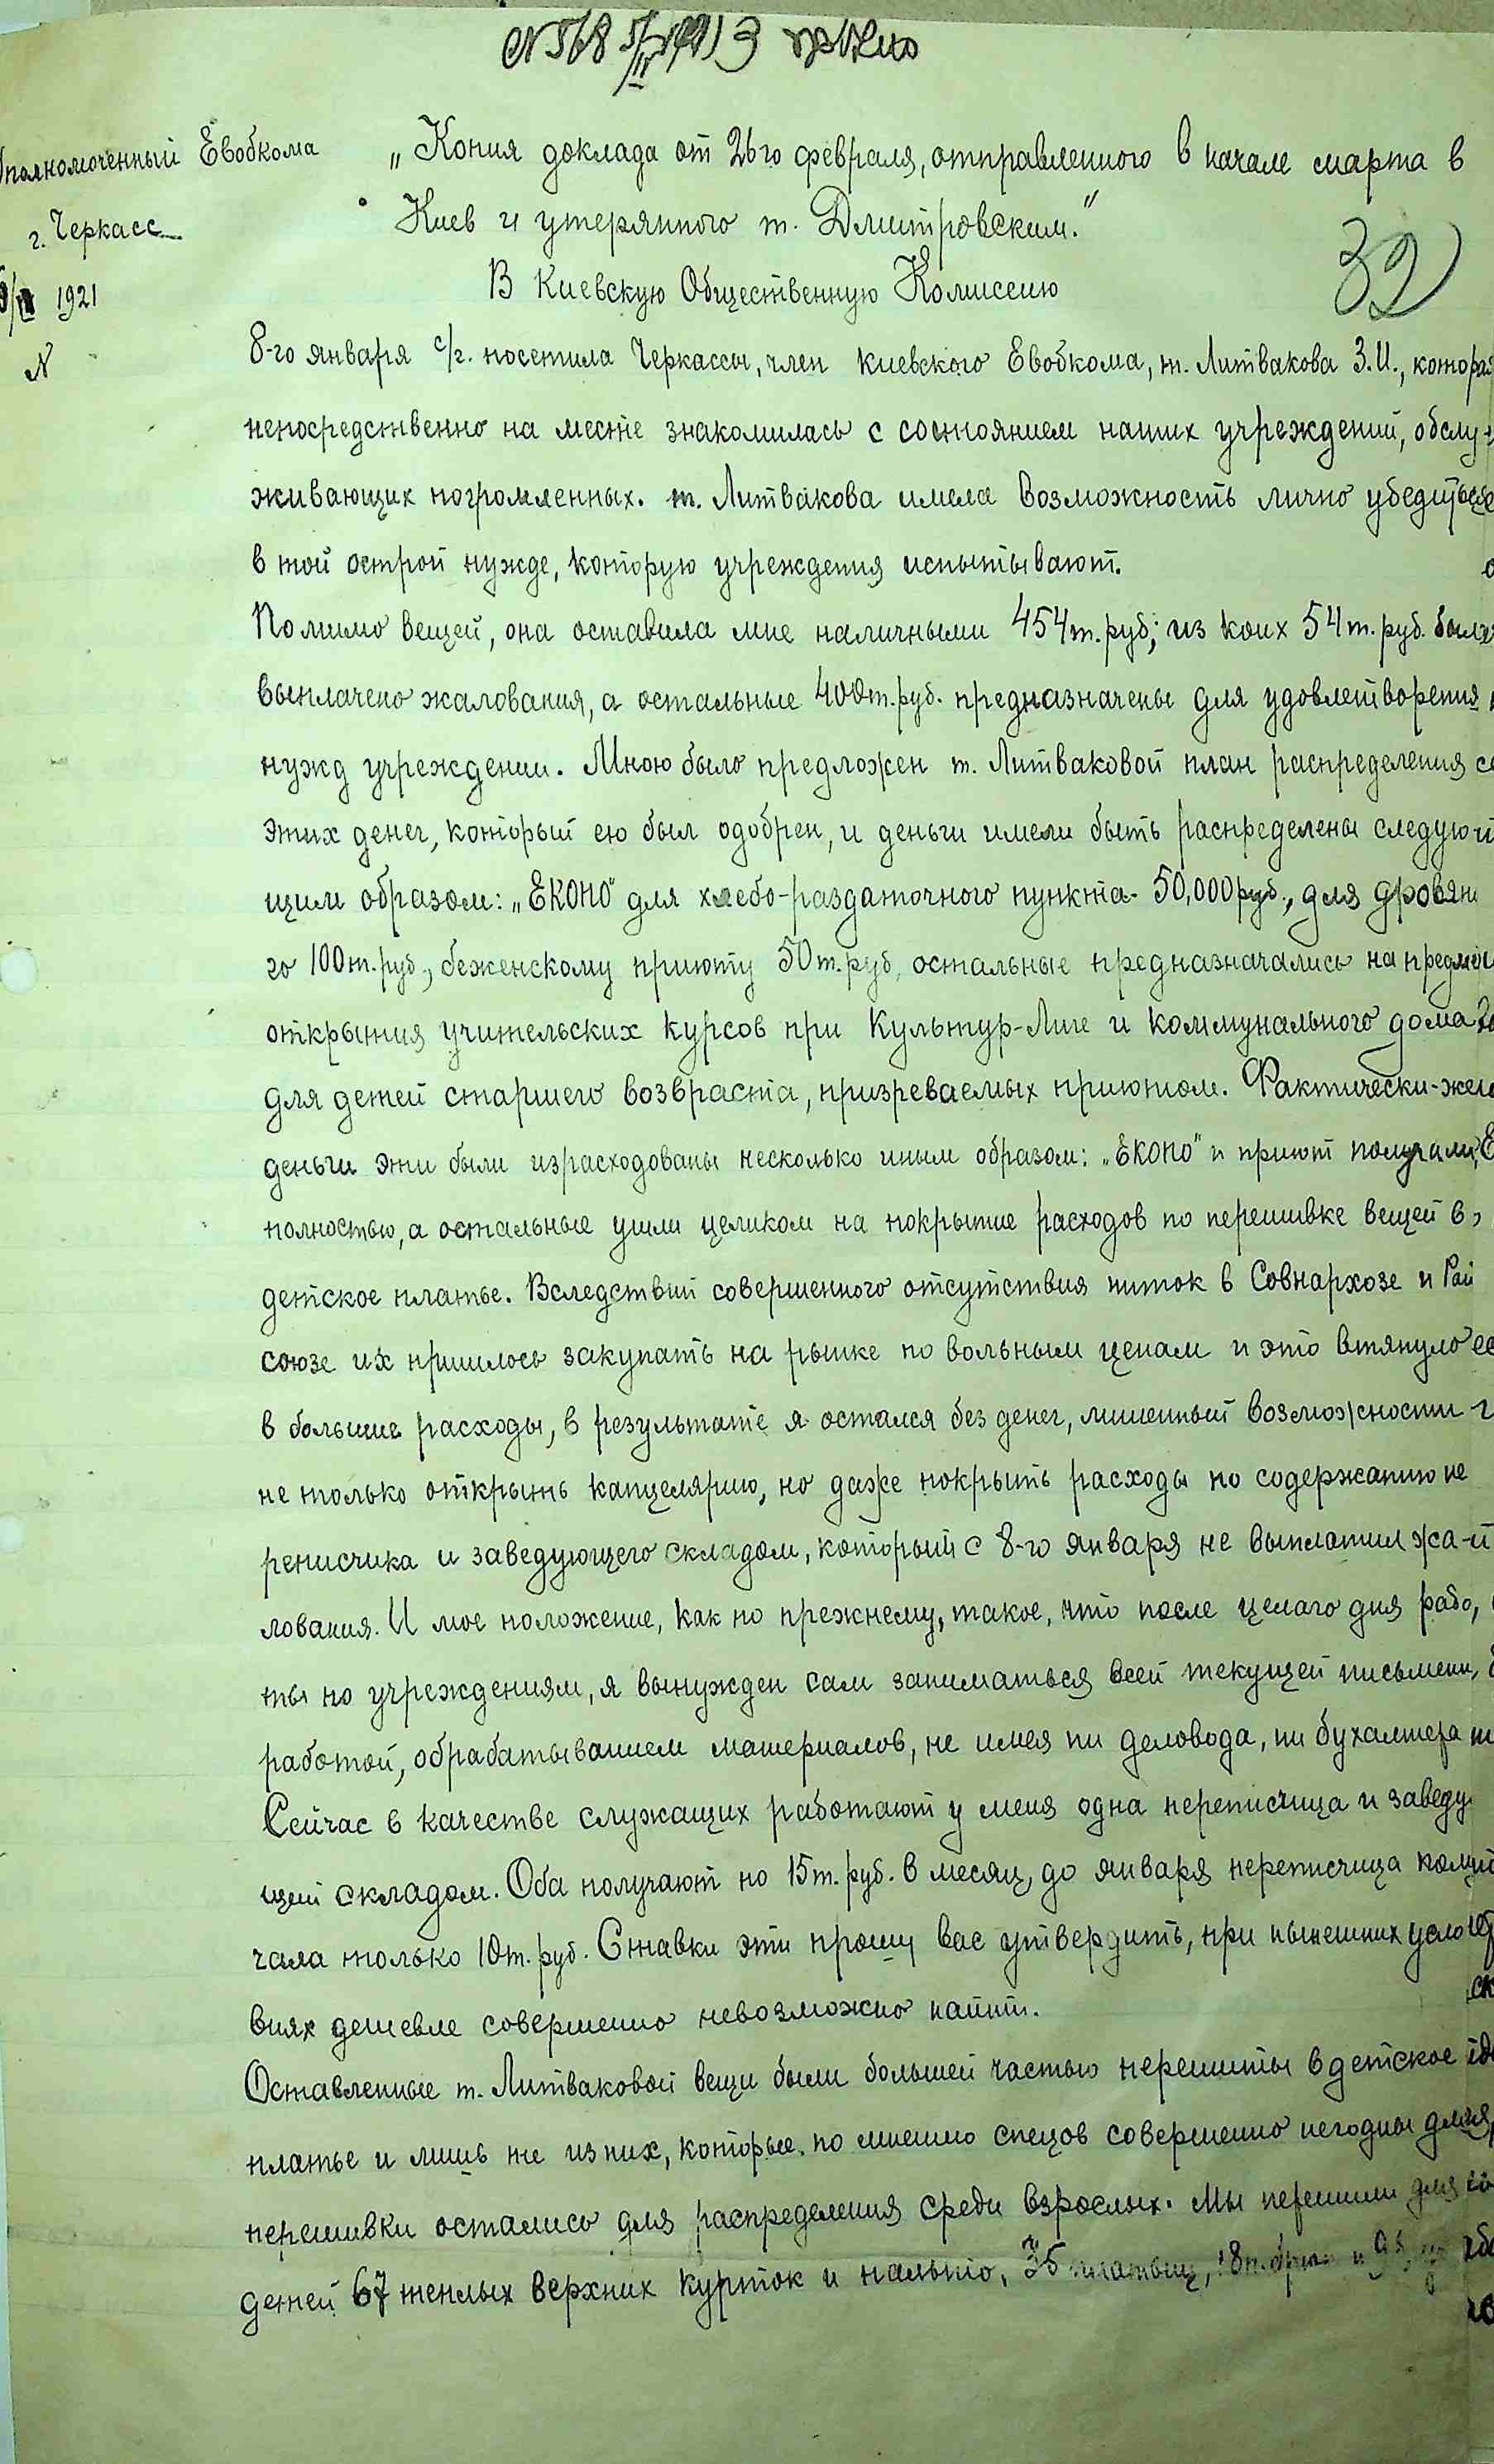 N 568
полномоченный Евобкома
г. Черкасс
1921
N
„Копия доклада от 26го февраля, отправленного в начале марта в
Киев и утерянного т. Дмитровским."
32
В Киевскую Общественную Комиссию
8-го января с/г. посетила Черкассы, член киевского Евобкома, т. Литвакова З.И., котора
непосредственно на месте знакомилась с состоянием наших учреждений, обслу-
живающих погромленных. т. Литвакова имела возможность лично убедиться
в той острой нужде, которую учреждения испытывают.
Помимо вещей, она оставила мне наличными 454 т. руб; из коих 54 т. руб. было
выплачено жалования, а остальные 400 т. руб. предназначены для удовлетворения
нужд учреждении. Мною было предложен т. Литваковой план распределения
этих денег, который ею был одобрен, и деньги имели быть распределены следую
щим образом: „ЕКОПО" для хлебо-раздаточного пункта - 50,000 руб., для дровян
го 100 т. руб., беженскому приюту 50 т. руб, остальные предназначались на предмет
открытия учительских курсов при Культур-Лиге и коммунального дома
для детей старшего возвраста, призреваемых приютом. Фактически-же
деньги эти были израсходованы несколько иным образом: „ЕКОПО" и приют получали
полностью, а остальные ушли целиком на покрытие расходов по перешивке вещей в
детское платье. Вследствии совершенного отсутствия ниток в Совнархозе и Рай
союзе их пришлось закупать на рынке по вольным ценам и это втянуло
в большие расходы, в результате я остался без денег, лишенный возможности
не только открыть канцелярию, но даже покрыть расходы по содержанию пе
реписчика и заведующего складом, который с 8-го января не выплатил жа-
лования. И мое положение, как по прежнему, такое, что после целаго дня рабо,
ты по учреждениям, я вынужден сам заниматься всей текущей письменн,
работой, обрабатыванием материалов, не имея ни деловода, ни бухалтера
Сейчас в качестве служащих работают у меня одна переписчица и заведу
щей складом. Оба получают по 15 т. руб. в месяц, до января переписчица полу
чала только 10 т. руб. Ставки эти прошу вас утвердить, при нынешних усло
виях дешевле совершенно невозможно найти.
Оставленные т. Литваковой вещи были большей частью перешиты в детское
платье и лишь те из них, которые по мнению спецов совершенно негодны для
перешивки остались для распределения среди взрослых. Мы перешили для
детей 67 теплых верхних курток и пальто, 35 платьиц,